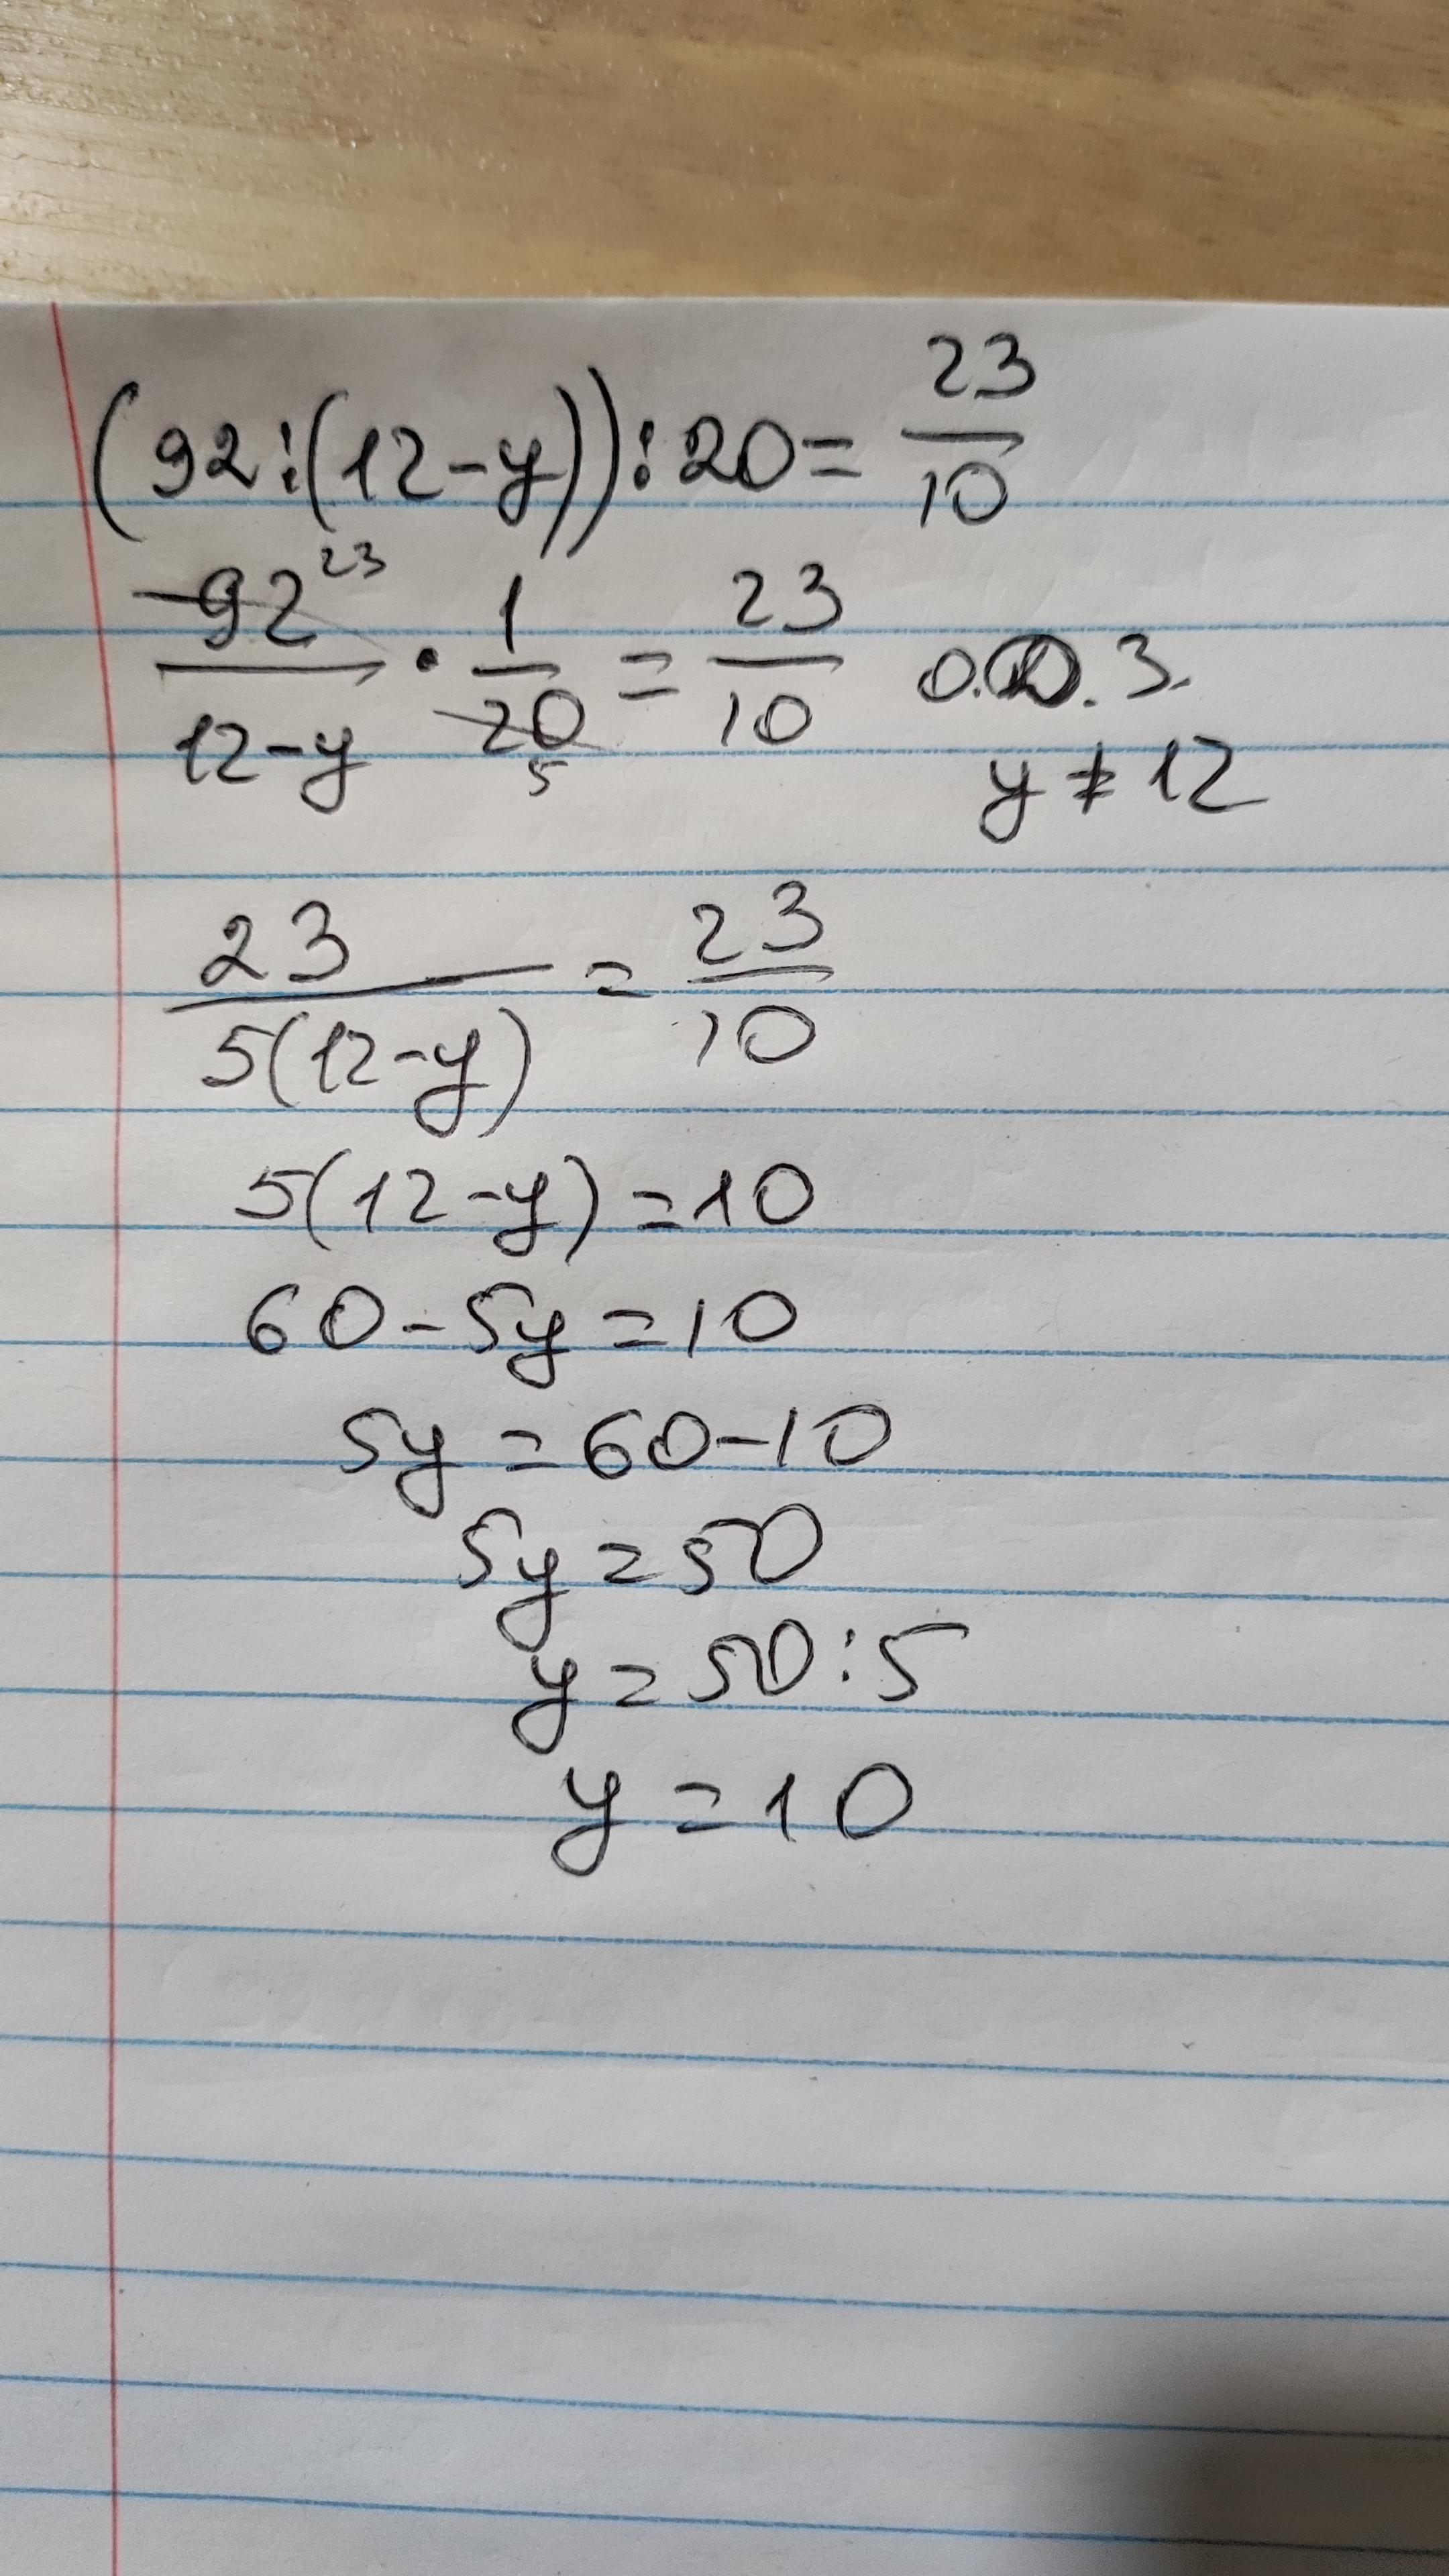 (92:(12-y)):20=23/10
92²³/12-y · 1/20 5 = 23/10 О.Д.З.
y≠12
23/5(12-y) = 23/10
5(12-y)=10
60-5y=10
5y=60-10
5y=50
y=50:5
y=10